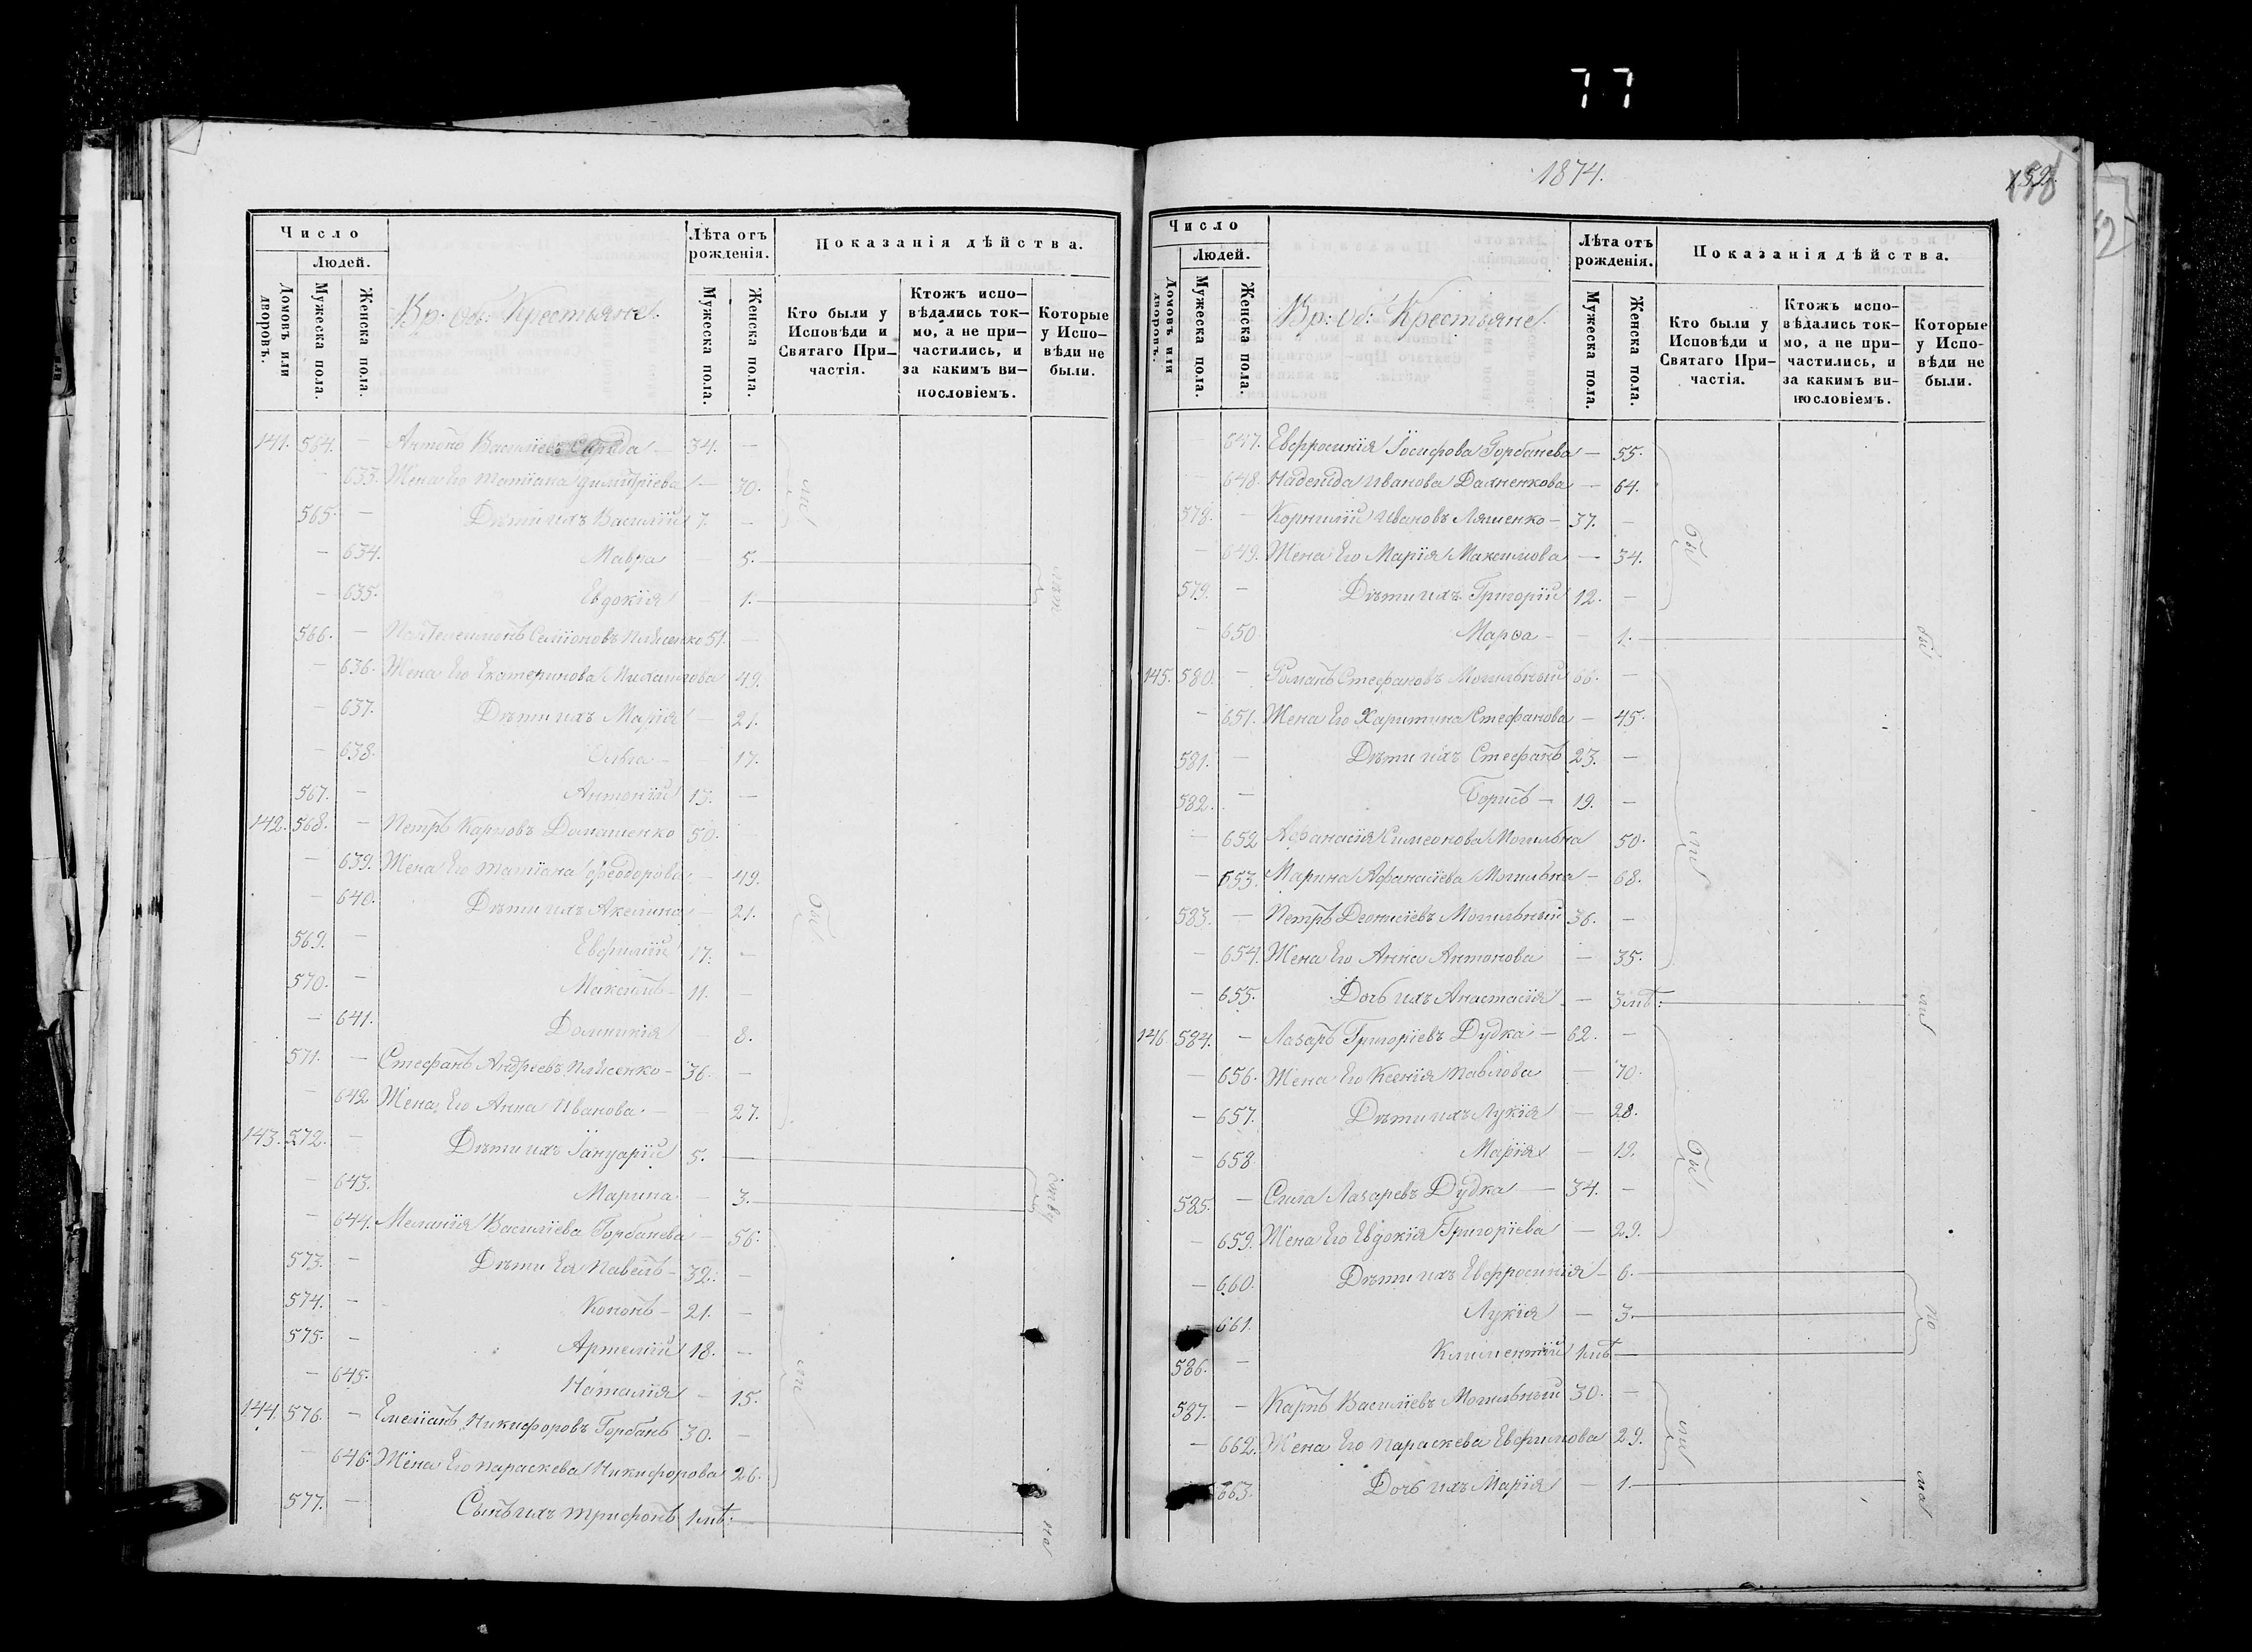 77
Число
Людей.
Домовъ или дворовъ.
Мужеска пола.
Женска пола.
Вр: Об: Крестьяне.
Лѣта отъ рожденія.
Мужеска пола.
Женска пола.
Показанія дѣйства.
Кто были у Исповѣди и Святаго Причастія.
Ктожъ исповѣдались токмо, а не причастились, и за какимъ винословіемъ.
Которые у Исповѣди не были.
141. 564. — Василіев 34. —
— 633. Жена Его Татіана Димитріева — 30.
565. — Дѣти ихъ Василій 7. —
— 634. Мавра — 5.
— 635. Евдокія 1.
566. — Пантелеимонъ Семіоновъ 51. —
— 636. Жена Его Екатеринова Михаилова 49.
— 637. Дѣти ихъ Марія — 21.
— 638. Ольга — 17.
567. — Антоній 13. —
142. 568. — Петръ Карповъ Домашенко 50. —
— 639. Жена Его Татіана Феодорова — 49.
— 640. Дѣти ихъ Акелина — 21.
569. — Евфимій 17. —
570. — Максимъ 11. —
— 641. Домникія — 8.
571. — Стефанъ Андреевъ 36. —
— 642 Жена Его Анна Иванова — 27.
143. 572. — Дѣти ихъ Іануарій 5. —
— 643. Марина — 3.
— 644. Меланія Василіева Горбанева — 56.
573. — Дѣти Ея Павелъ — 32. —
574. — Кононъ — 21. —
575. — Артемій 18. —
— 645. Наталія — 15.
144. 576. — Емеліанъ Никифоровъ Горбань 30. —
— 646. Жена Его Параскева Никифорова 26.
577. — Сынъ ихъ Трифонъ 1 мѣ:
1874.
Число
Людей.
Домовъ или дворовъ.
Мужеска пола.
Женска пола.
Вр: Об: Крестьяне.
Лѣта отъ рожденія.
Мужеска пола.
Женска пола.
Показанія дѣйства.
Кто были у Исповѣди и Святаго Причастія.
Ктожъ исповѣдались токмо, а не причастились, и за какимъ винословіемъ.
Которые у Исповѣди не были.
— 647. Евфросинія Іосифова Горбанева — 55.
— 648. Надежда Иванова Дахненкова — 64.
578. — Корнилій Ивановъ Ляшенко — 37. —
— 649. Жена Его Марія Максимова — 34.
579. — Дѣти ихъ Григорій 12. —
— 650. Марѳа — — 1.
145. 580. — Романъ Стефановъ Могильный 66. —
— 651. Жена Его Харитина Стефанова — 45.
581. — Дѣти ихъ Стефанъ 23. —
582. — Борисъ — 19. —
— 652 Афанасія Симеонова Могильна 50.
— 653. Марина Афанасіева Могильна — 68.
583. — Петръ Діонисіевъ Могильный 36. —
— 654. Жена Его Анна Антонова — 35.
— 655. Дочь ихъ Анастасія — 3 мѣ:
146. 584. — Лазарь Григоріевъ Дудка — 62. —
— 656. Жена Его Ксенія Павлова — 70.
— 657. Дѣти ихъ Лукія — 28.
— 658 Марія — 19.
585. — Сила Лазаревъ Дудка — 34. —
— 659. Жена Его Евдокія Григоріева — 29.
— 660. Дѣти ихъ Евфросинія — 6.
661. Лукія — 3.
586. — Климентій 1 мѣ
587. — Карпъ Василіевъ Могильный 30. —
— 662. Жена Его Параскева Евфимова 29.
663. Дочь ихъ Марія — 1.